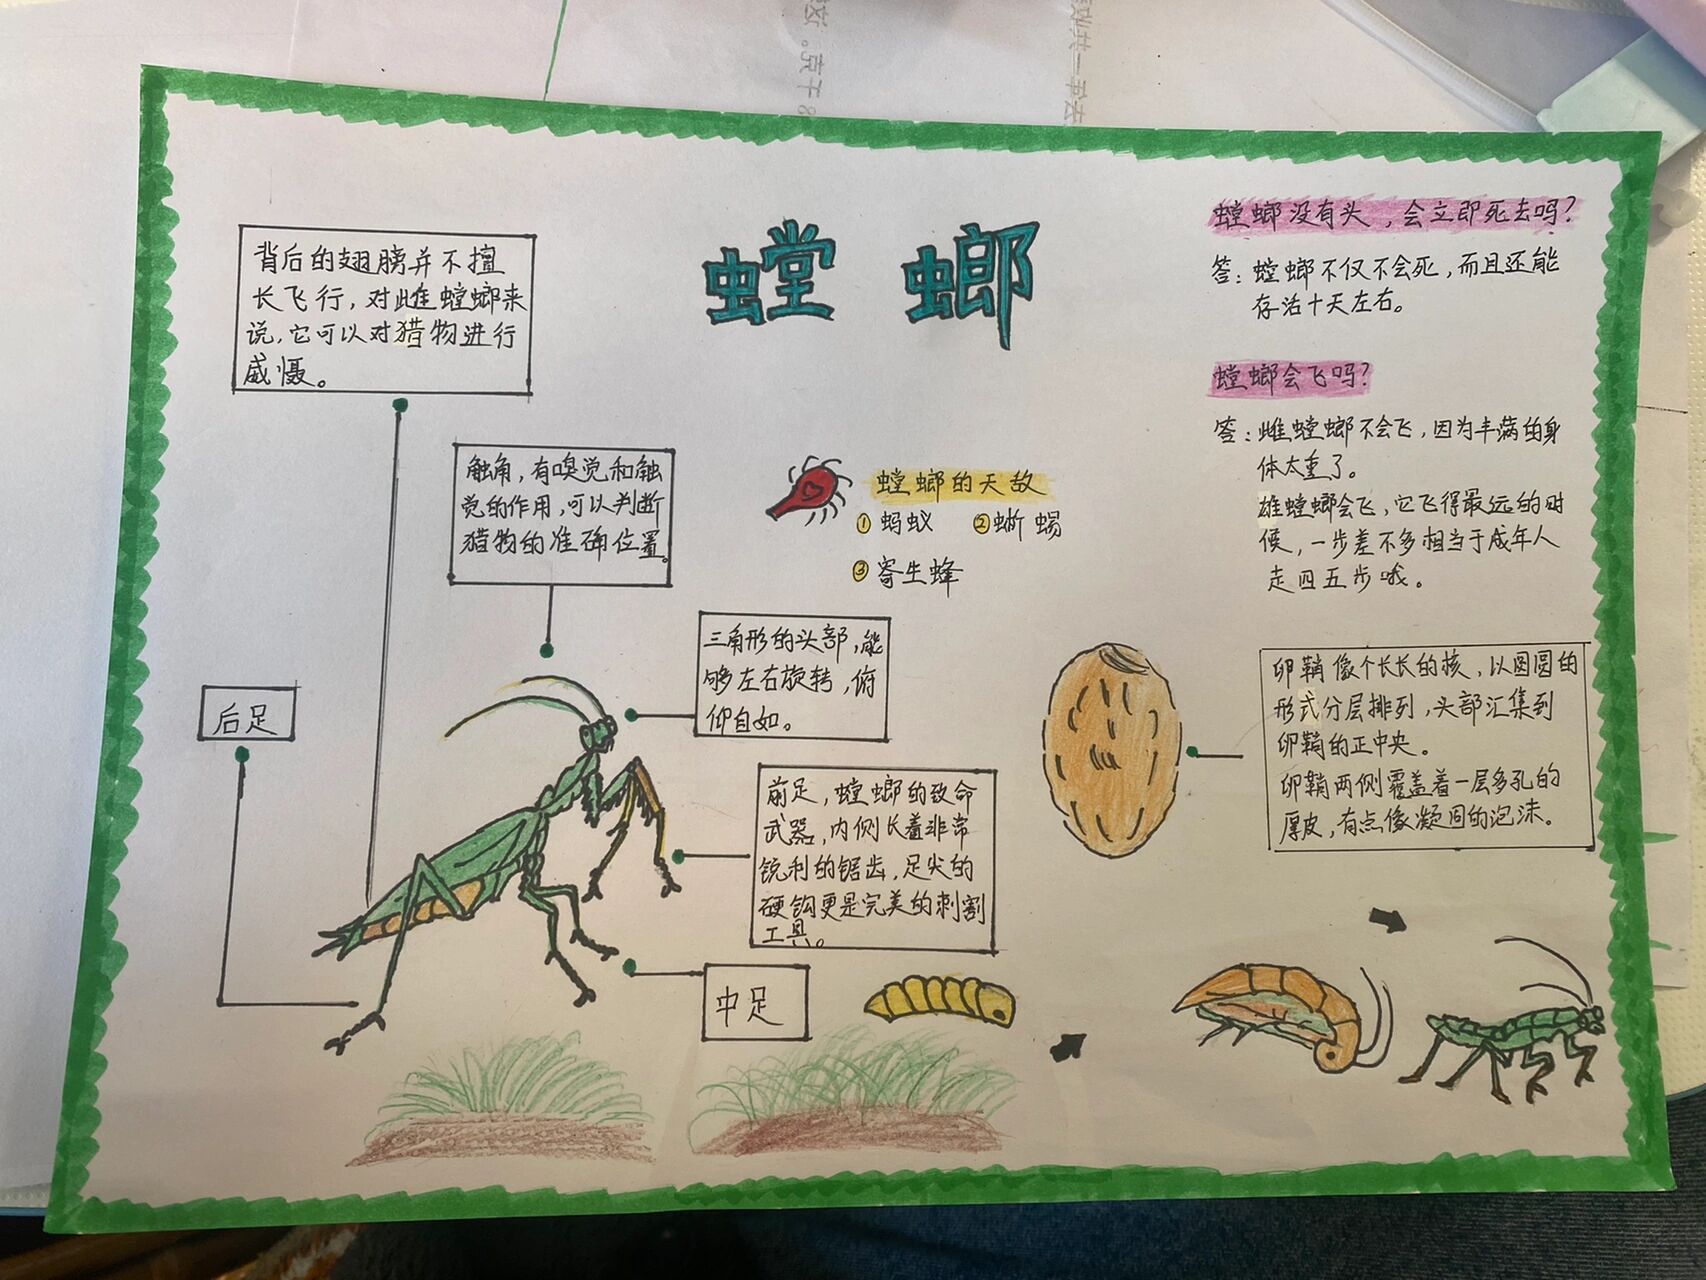 螳螂
背后的翅膀并不擅
长飞行，对雌螳螂来
说，它可以对猎物进行
威慑。
触角，有嗅觉和触
觉的作用，可以判断
猎物的准确位置。
三角形的头部，能
够左右旋转，俯
仰自如。
后足
前足，螳螂的致命
武器，内侧长着非常
锐利的锯齿，足尖的
硬钩更是完美的刺割
工具。
中足
螳螂的天敌
①蚂蚁 ②蜥蜴
③寄生蜂
螳螂没有头，会立即死去吗？
答：螳螂不仅不会死，而且还能
存活十天左右。
螳螂会飞吗？
答：雌螳螂不会飞，因为丰满的身
体太重了。
雄螳螂会飞，它飞得最远的时
候，一步差不多相当于成年人
走四五步哦。
卵鞘像个长长的核，以圆圆的
形式分层排列，头部汇集到
卵鞘的正中央。
卵鞘两侧覆盖着一层多孔的
厚皮，有点像凝固的泡沫。